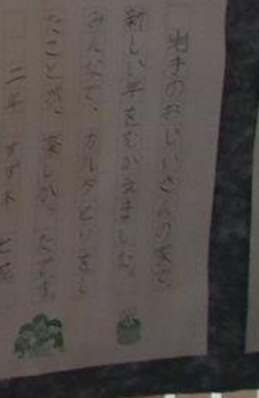 岩手のおじいさんの家で
新しい年をむかえました。
みんなで、カルタとりをし
たことが、楽しかったです。
二年 すず木